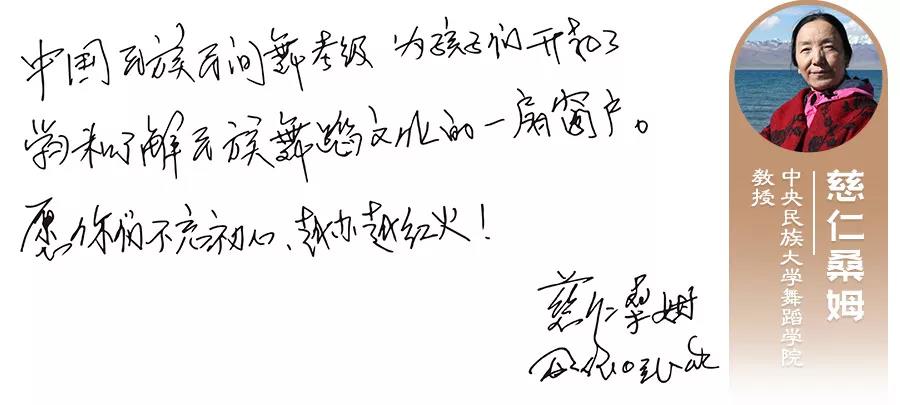 中国民族民间舞考级 为孩子们开启了
学习和了解民族舞蹈文化的一扇窗户。
愿你们不忘初心、越办越红火！
慈仁桑姆
慈仁桑姆
中央民族大学舞蹈学院
教授